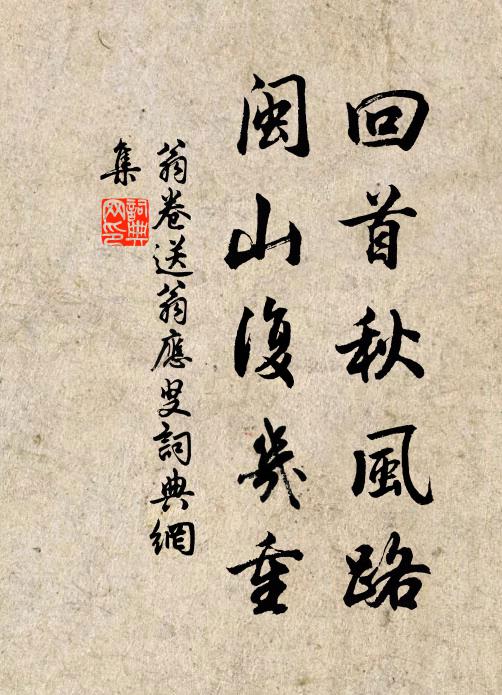 回首秋風路
闽山復幾重
翁卷送翁應叟詞典網
集
詞典
网印